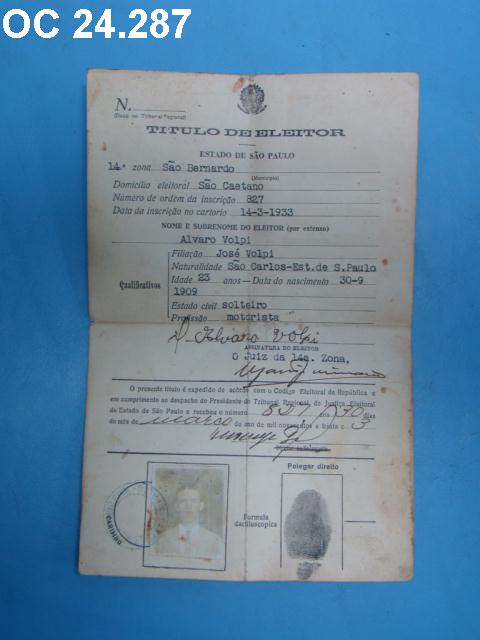 OC 24.287
N.
(Dado no Tribunal Regional)
TITULO DE ELEITOR
ESTADO DE SÃO PAULO
14.ª zona São Bernardo
(Municipio)
Domicilio eleitoral São Caetano
Número de ordem da inscrição 827
Data da inscrição no cartorio 14-3-1933
NOME E SOBRENOME DO ELEITOR (por extenso)
Alvaro Volpi
Qualificativos
Filiação José Volpi
Naturalidade São Carlos-Est. de S.Paulo
Idade 23 anos — Data do nascimento 30-9
1909
Estado civil solteiro
Profissão motorista
Alvaro Volpi
ASSINATURA DO ELEITOR
O Juiz da 14a. Zona,
O presente titulo é expedido de acôrdo com o Codigo Eleitoral da Republica e
em cumprimento ao despacho do Presidente do Tribunal Regional de Justiça Eleitoral
do Estado de São Paulo e recebeu o número 827 aos 30 dias
do mês de março do ano de mil novecentos e trinta e 3
Polegar direito
Formula
dactiloscopica
CARIMBO